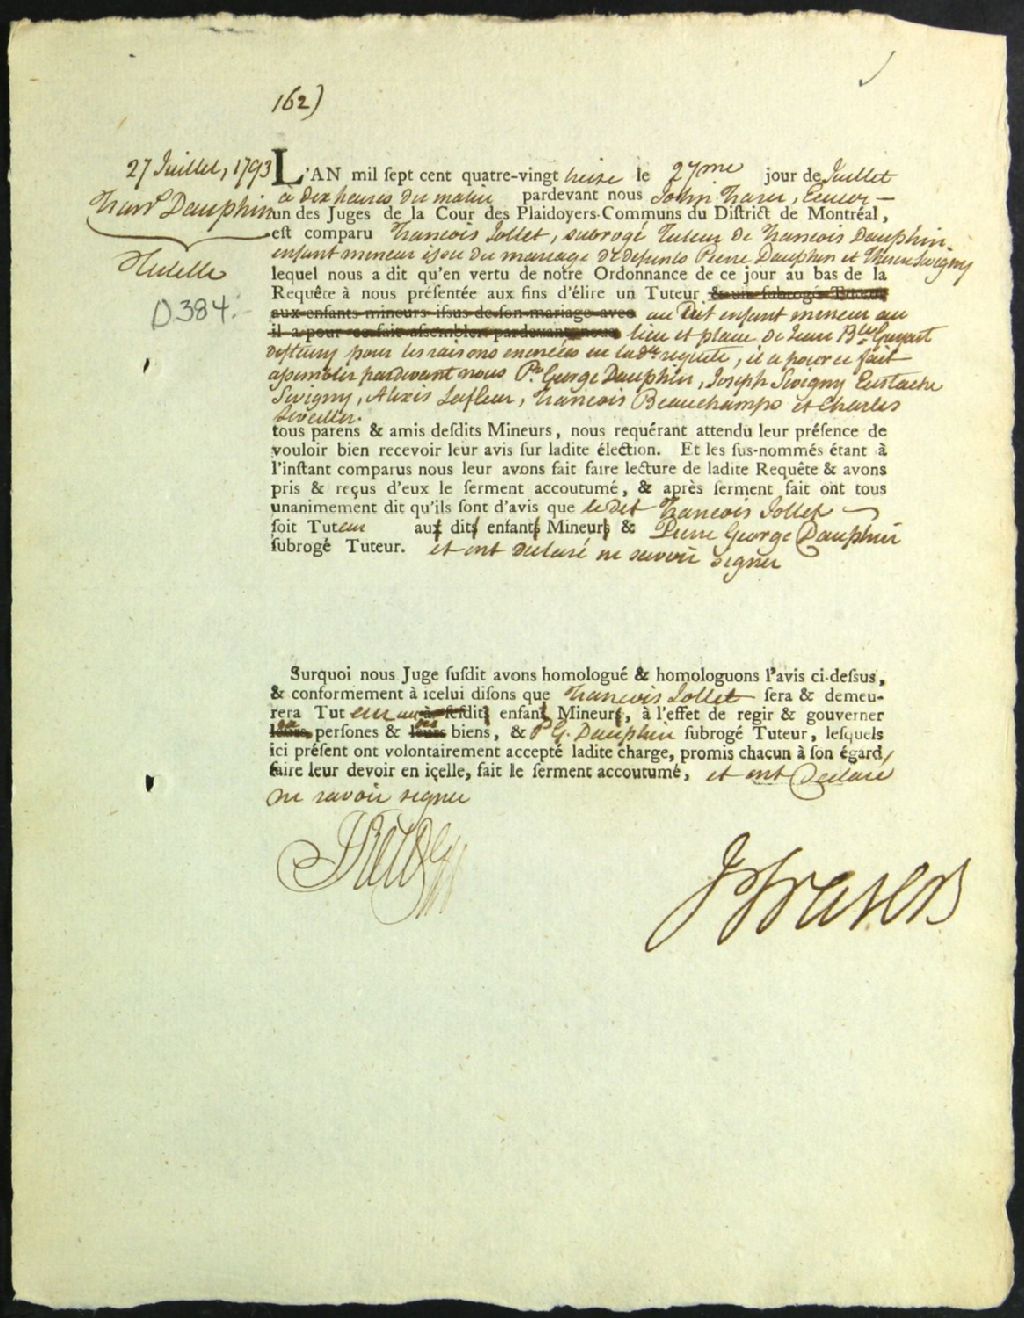 162)
27 Juillet, 1793
Fran.s Dauphin
Tutelle
D.384.
L'AN mil ſept cent quatre-vingt treize le 27me jour de Juillet
à dix heures du matin pardevant nous John Fraser, Ecuier
un des Juges de la Cour des Plaidoyers-Communs du Diſtrict de Montréal,
eſt comparu Francois Jollet, subrogé Tuteur de Francois Dauphin
enfant mineur issu du mariage de defunts Pierre Dauphin et Therese Sivigny
lequel nous a dit qu'en vertu de notre Ordonnance de ce jour au bas de la
Requête à nous préſentée aux fins d'élire un Tuteur & un ſubrogé Tuteur
aux enfants mineurs iſſus de ſon mariage avec au dit enfant mineur au
il a pour ce fait aſſembler pardevant nous lieu et place de Jean Bte
pour les raisons enoncées en la dte requete, il a pour ce fait
assembler pardevant nous Pre George Dauphin, Joseph Sivigny Eustache
Sivigny, Alexis Lafleur, Francois Beauchamps et Charles
tous parens & amis deſdits Mineurs, nous requérant attendu leur préſence de
vouloir bien recevoir leur avis ſur ladite élection. Et les ſus-nommés étant à
l'inſtant comparus nous leur avons fait faire lecture de ladite Requête & avons
pris & reçus d'eux le ſerment accoutumé, & après ſerment fait ont tous
unanimement dit qu'ils ſont d'avis que le dit Francois Jollet
ſoit Tuteur au dit enfant Mineur & Pierre George Dauphin
ſubrogé Tuteur. et ont declaré ne savoir signer
Surquoi nous Juge ſuſdit avons homologué & homologuons l'avis ci-deſſus,
& conformement à icelui diſons que Francois Jollet ſera & demeu-
rera Tuteur au enfant Mineur, à l'effet de regir & gouverner
perſones & biens, & P G. Dauphin ſubrogé Tuteur, leſquels
ici préſent ont volontairement accepté ladite charge, promis chacun à ſon égard
faire leur devoir en içelle, fait le ſerment accoutumé, et ont Declaré
ne savoir signer
J Fraser